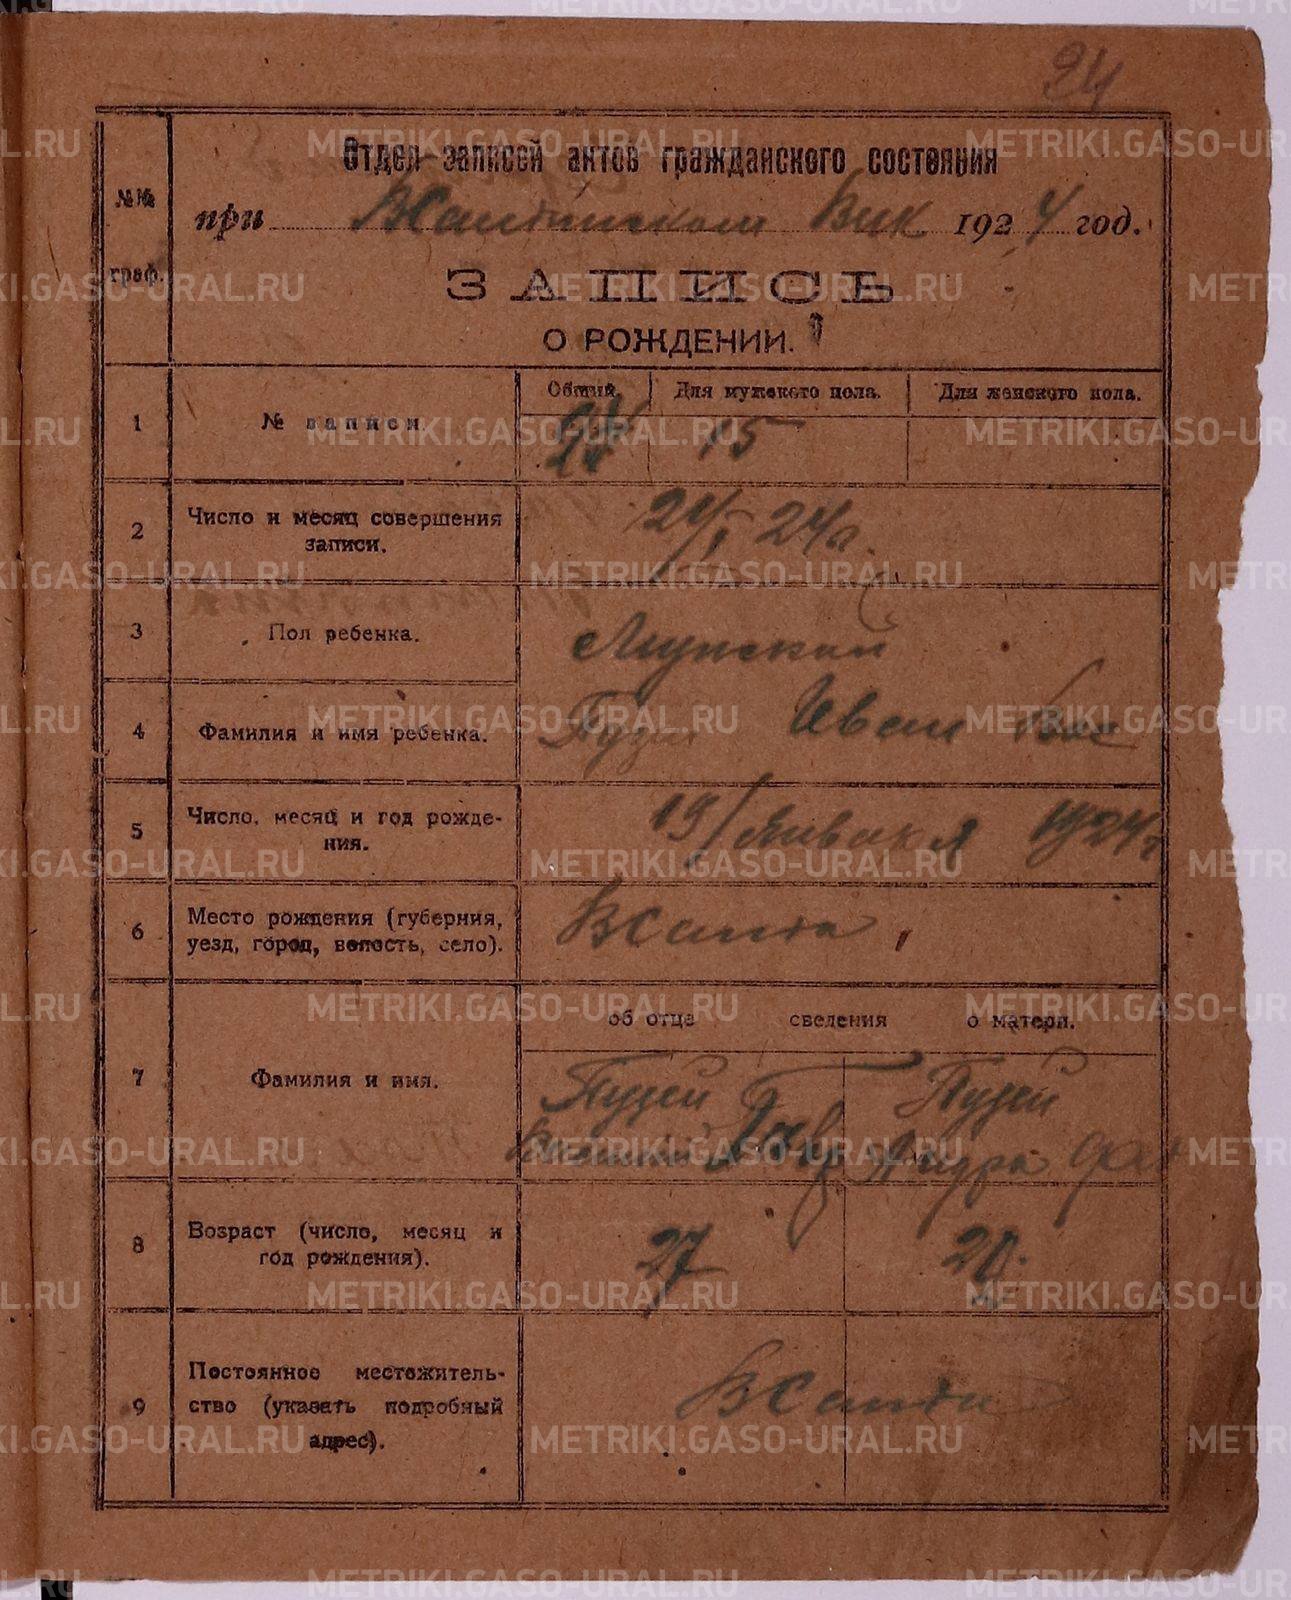 24
Отдел записей актов гражданского состояния
№№
граф.
при Вик 1924 год.
ЗАПИСЬ
О РОЖДЕНИИ.
Общий. Для мужского пола. Для женского пола.
1 № записи. 15
2 Число и месяц совершения
записи.
24/I 24г.
3 Пол ребенка. Мужской
4 Фамилия и имя ребенка. Иван Вас
5 Число, месяц и год рожде-
ния.
19/Января 1924г
6 Место рождения (губерния,
уезд, город, волость, село).
ВСалда
об отце сведения о матери.
7 Фамилия и имя.
Пузей Пузей
8 Возраст (число, месяц и
год рождения).
27
9 Постоянное местожитель-
ство (указать подробный
адрес).
ВСалда
METRIKI.GASO-URAL.RU